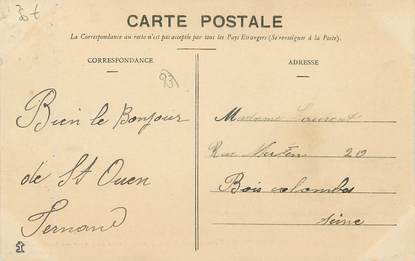 CARTE POSTALE
La Correspondance au recto n'est pas acceptée par tous les Pays Etrangers (Se renseigner à la Poste).
CORRESPONDANCE
ADRESSE
93
Bien le Bonjour
de St Ouen
Fernand
Madame Laurent
Rue 20
Bois colombes
Seine